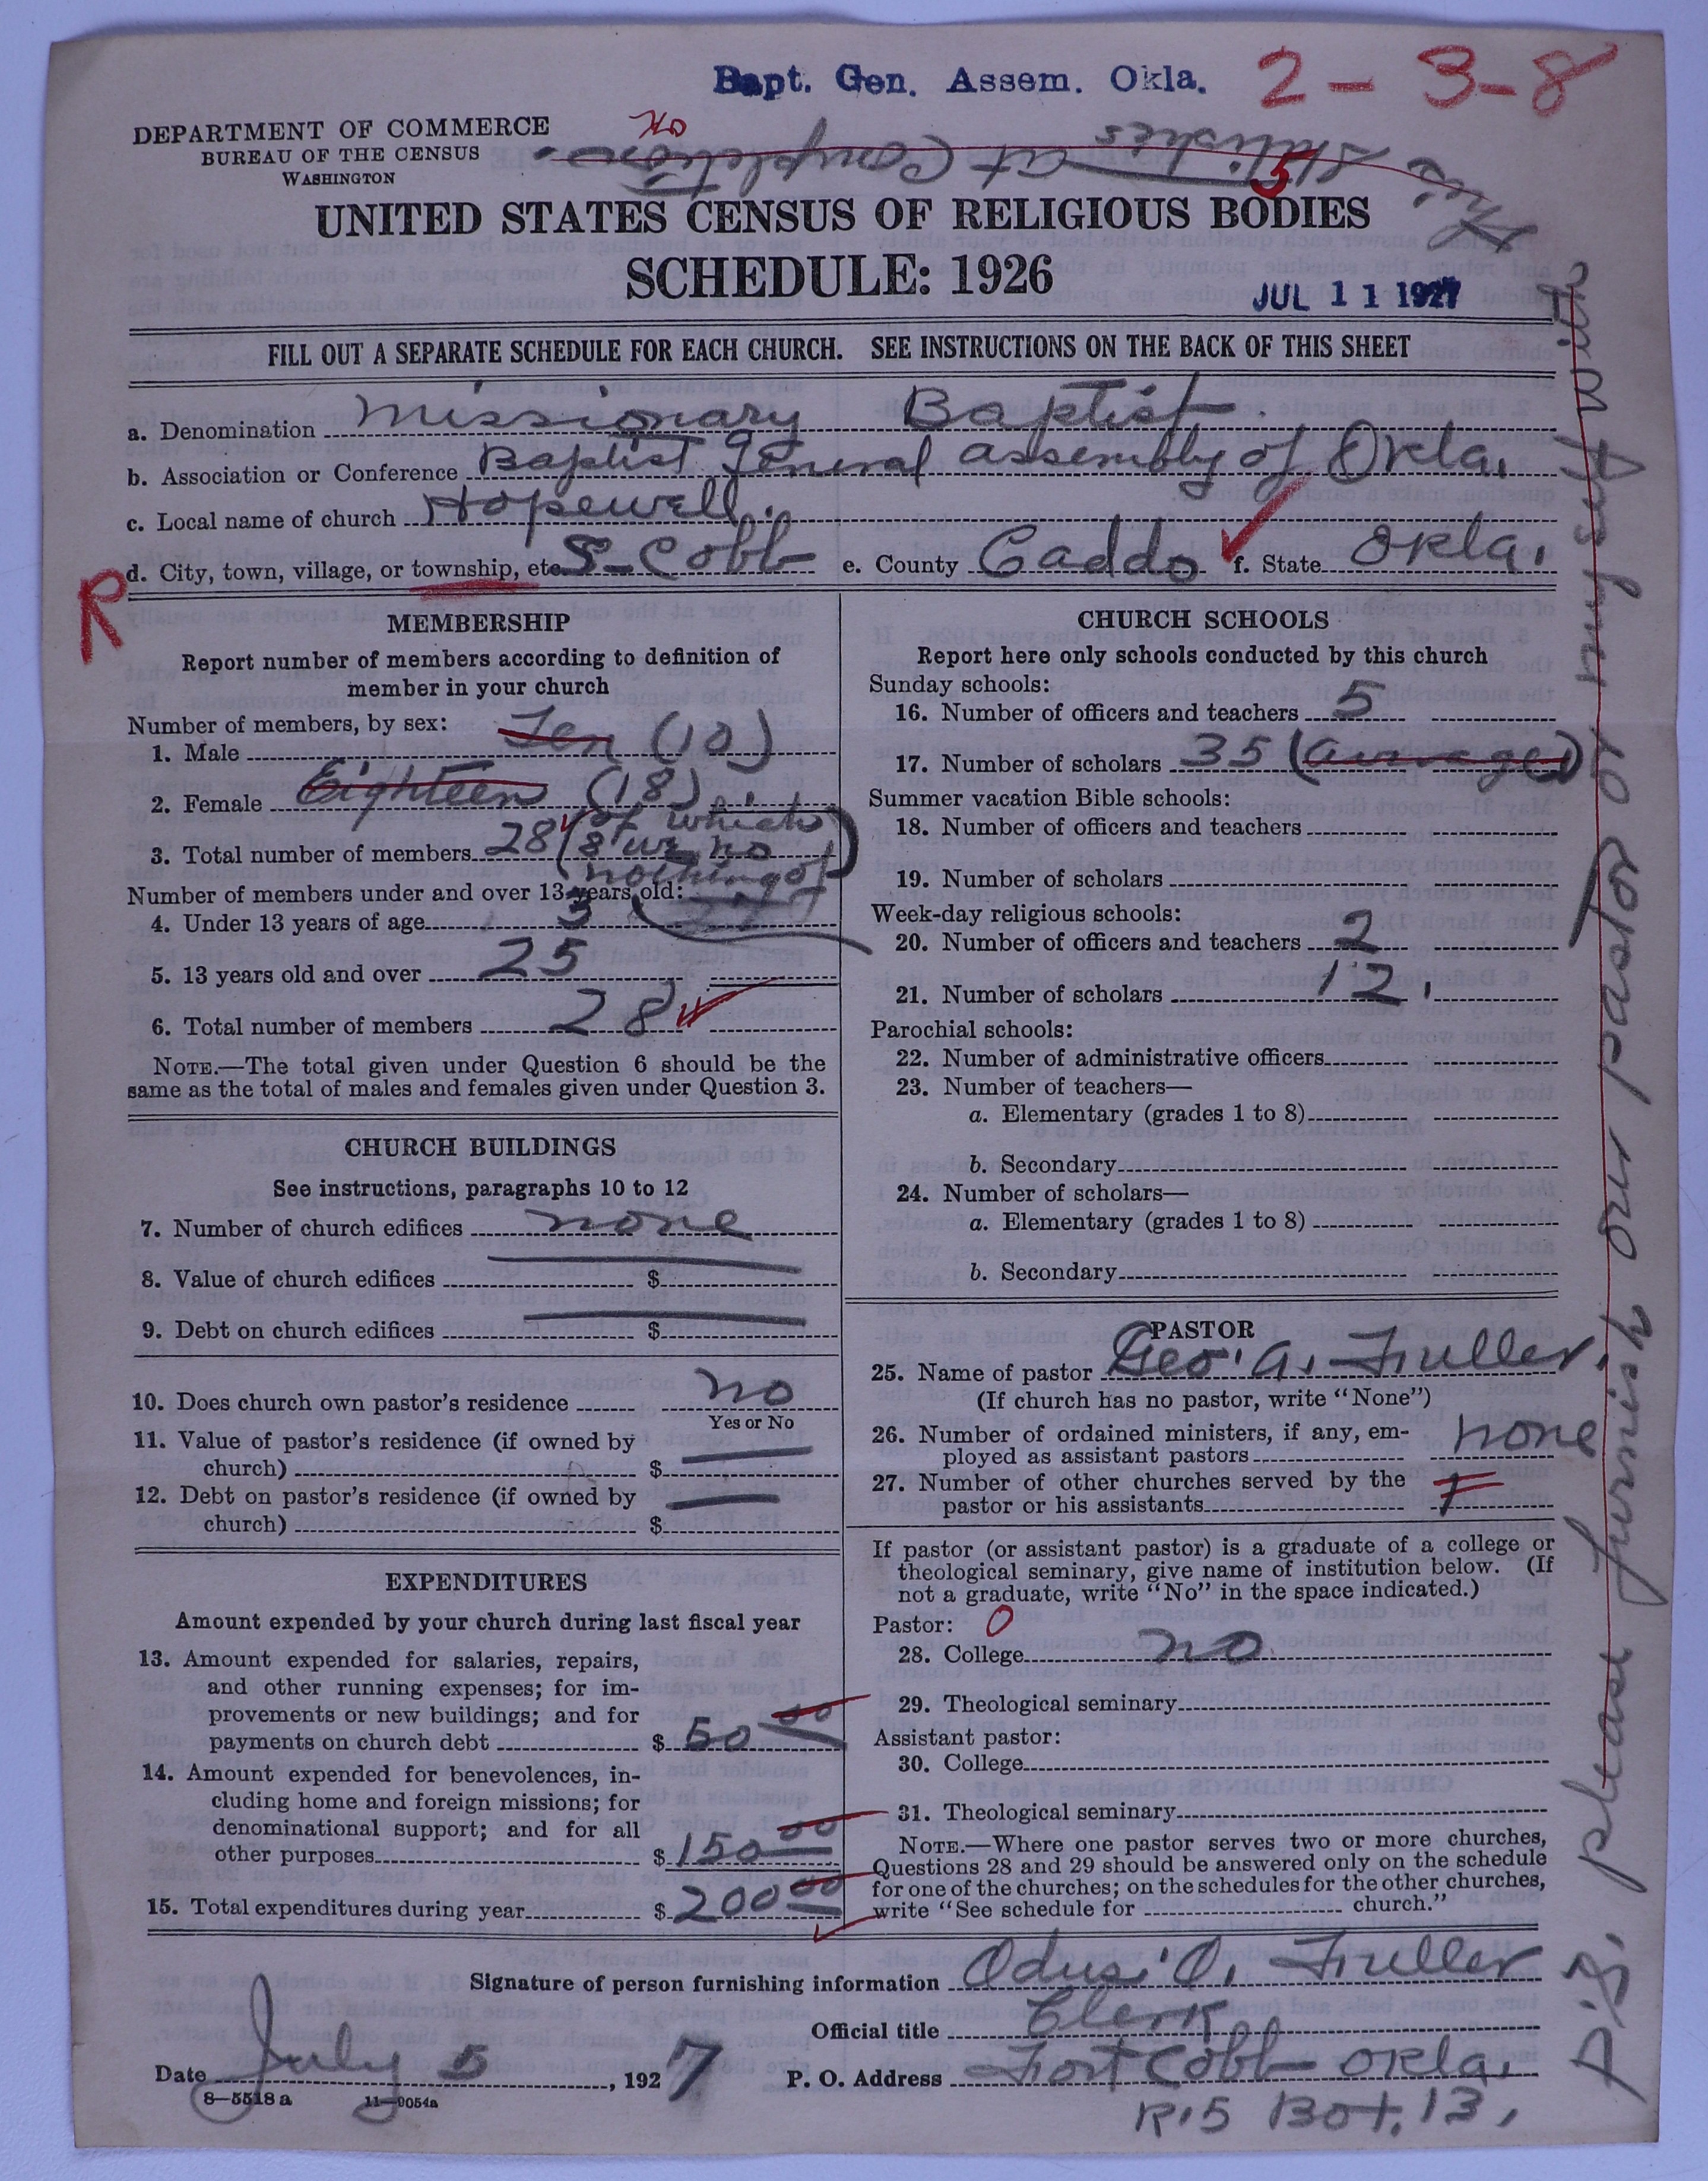 Bapt. Gen. Assem. Okla. 2-3-8
DEPARTMENT OF COMMERCE
BUREAU OF THE CENSUS
WASHINGTON
No
5
The Statistics at Completion
UNITED STATES CENSUS OF RELIGIOUS BODIES
SCHEDULE: 1926
JUL 11 1927
FILL OUT A SEPARATE SCHEDULE FOR EACH CHURCH. SEE INSTRUCTIONS ON THE BACK OF THIS SHEET
a. Denomination Missionary Baptist.
b. Association or Conference Baptist General assembly of Okla.
c. Local name of church Hopewell.
d. City, town, village, or township, etc. S-Cobb e. County Caddo f. State Okla.
R
MEMBERSHIP
Report number of members according to definition of
member in your church
Number of members, by sex:
1. Male Ten (10)
2. Female Eighteen (18)
3. Total number of members 28 (of which
8 we no
nothing of
Number of members under and over 13 years old:
4. Under 13 years of age 3
5. 13 years old and over 25
6. Total number of members 28
NOTE.—The total given under Question 6 should be the
same as the total of males and females given under Question 3.
CHURCH BUILDINGS
See instructions, paragraphs 10 to 12
7. Number of church edifices none
8. Value of church edifices $
9. Debt on church edifices $
10. Does church own pastor's residence no
Yes or No
11. Value of pastor's residence (if owned by
church) $
12. Debt on pastor's residence (if owned by
church) $
EXPENDITURES
Amount expended by your church during last fiscal year
13. Amount expended for salaries, repairs,
and other running expenses; for im-
provements or new buildings; and for
payments on church debt $ 50 00
14. Amount expended for benevolences, in-
cluding home and foreign missions; for
denominational support; and for all
other purposes $ 150 00
15. Total expenditures during year $ 200 00
CHURCH SCHOOLS
Report here only schools conducted by this church
Sunday schools:
16. Number of officers and teachers 5
17. Number of scholars 35 (average)
Summer vacation Bible schools:
18. Number of officers and teachers
19. Number of scholars
Week-day religious schools:
20. Number of officers and teachers 2
21. Number of scholars 12.
Parochial schools:
22. Number of administrative officers
23. Number of teachers—
a. Elementary (grades 1 to 8)
b. Secondary
24. Number of scholars—
a. Elementary (grades 1 to 8)
b. Secondary
PASTOR
25. Name of pastor Geo. A. Fuller.
(If church has no pastor, write "None")
26. Number of ordained ministers, if any, em-
ployed as assistant pastors none
27. Number of other churches served by the
pastor or his assistants 7
If pastor (or assistant pastor) is a graduate of a college or
theological seminary, give name of institution below. (If
not a graduate, write "No" in the space indicated.)
Pastor: 0
28. College no
29. Theological seminary
Assistant pastor:
30. College
31. Theological seminary
NOTE.—Where one pastor serves two or more churches,
Questions 28 and 29 should be answered only on the schedule
for one of the churches; on the schedules for the other churches,
write "See schedule for church."
Signature of person furnishing information Odus O. Fuller
Official title Clerk
Date July 5, 1927 P. O. Address Fort Cobb Okla.
R.5 Box. 13.
8—5518 a 11—9054a
P.S. please furnish our pastor or myself with